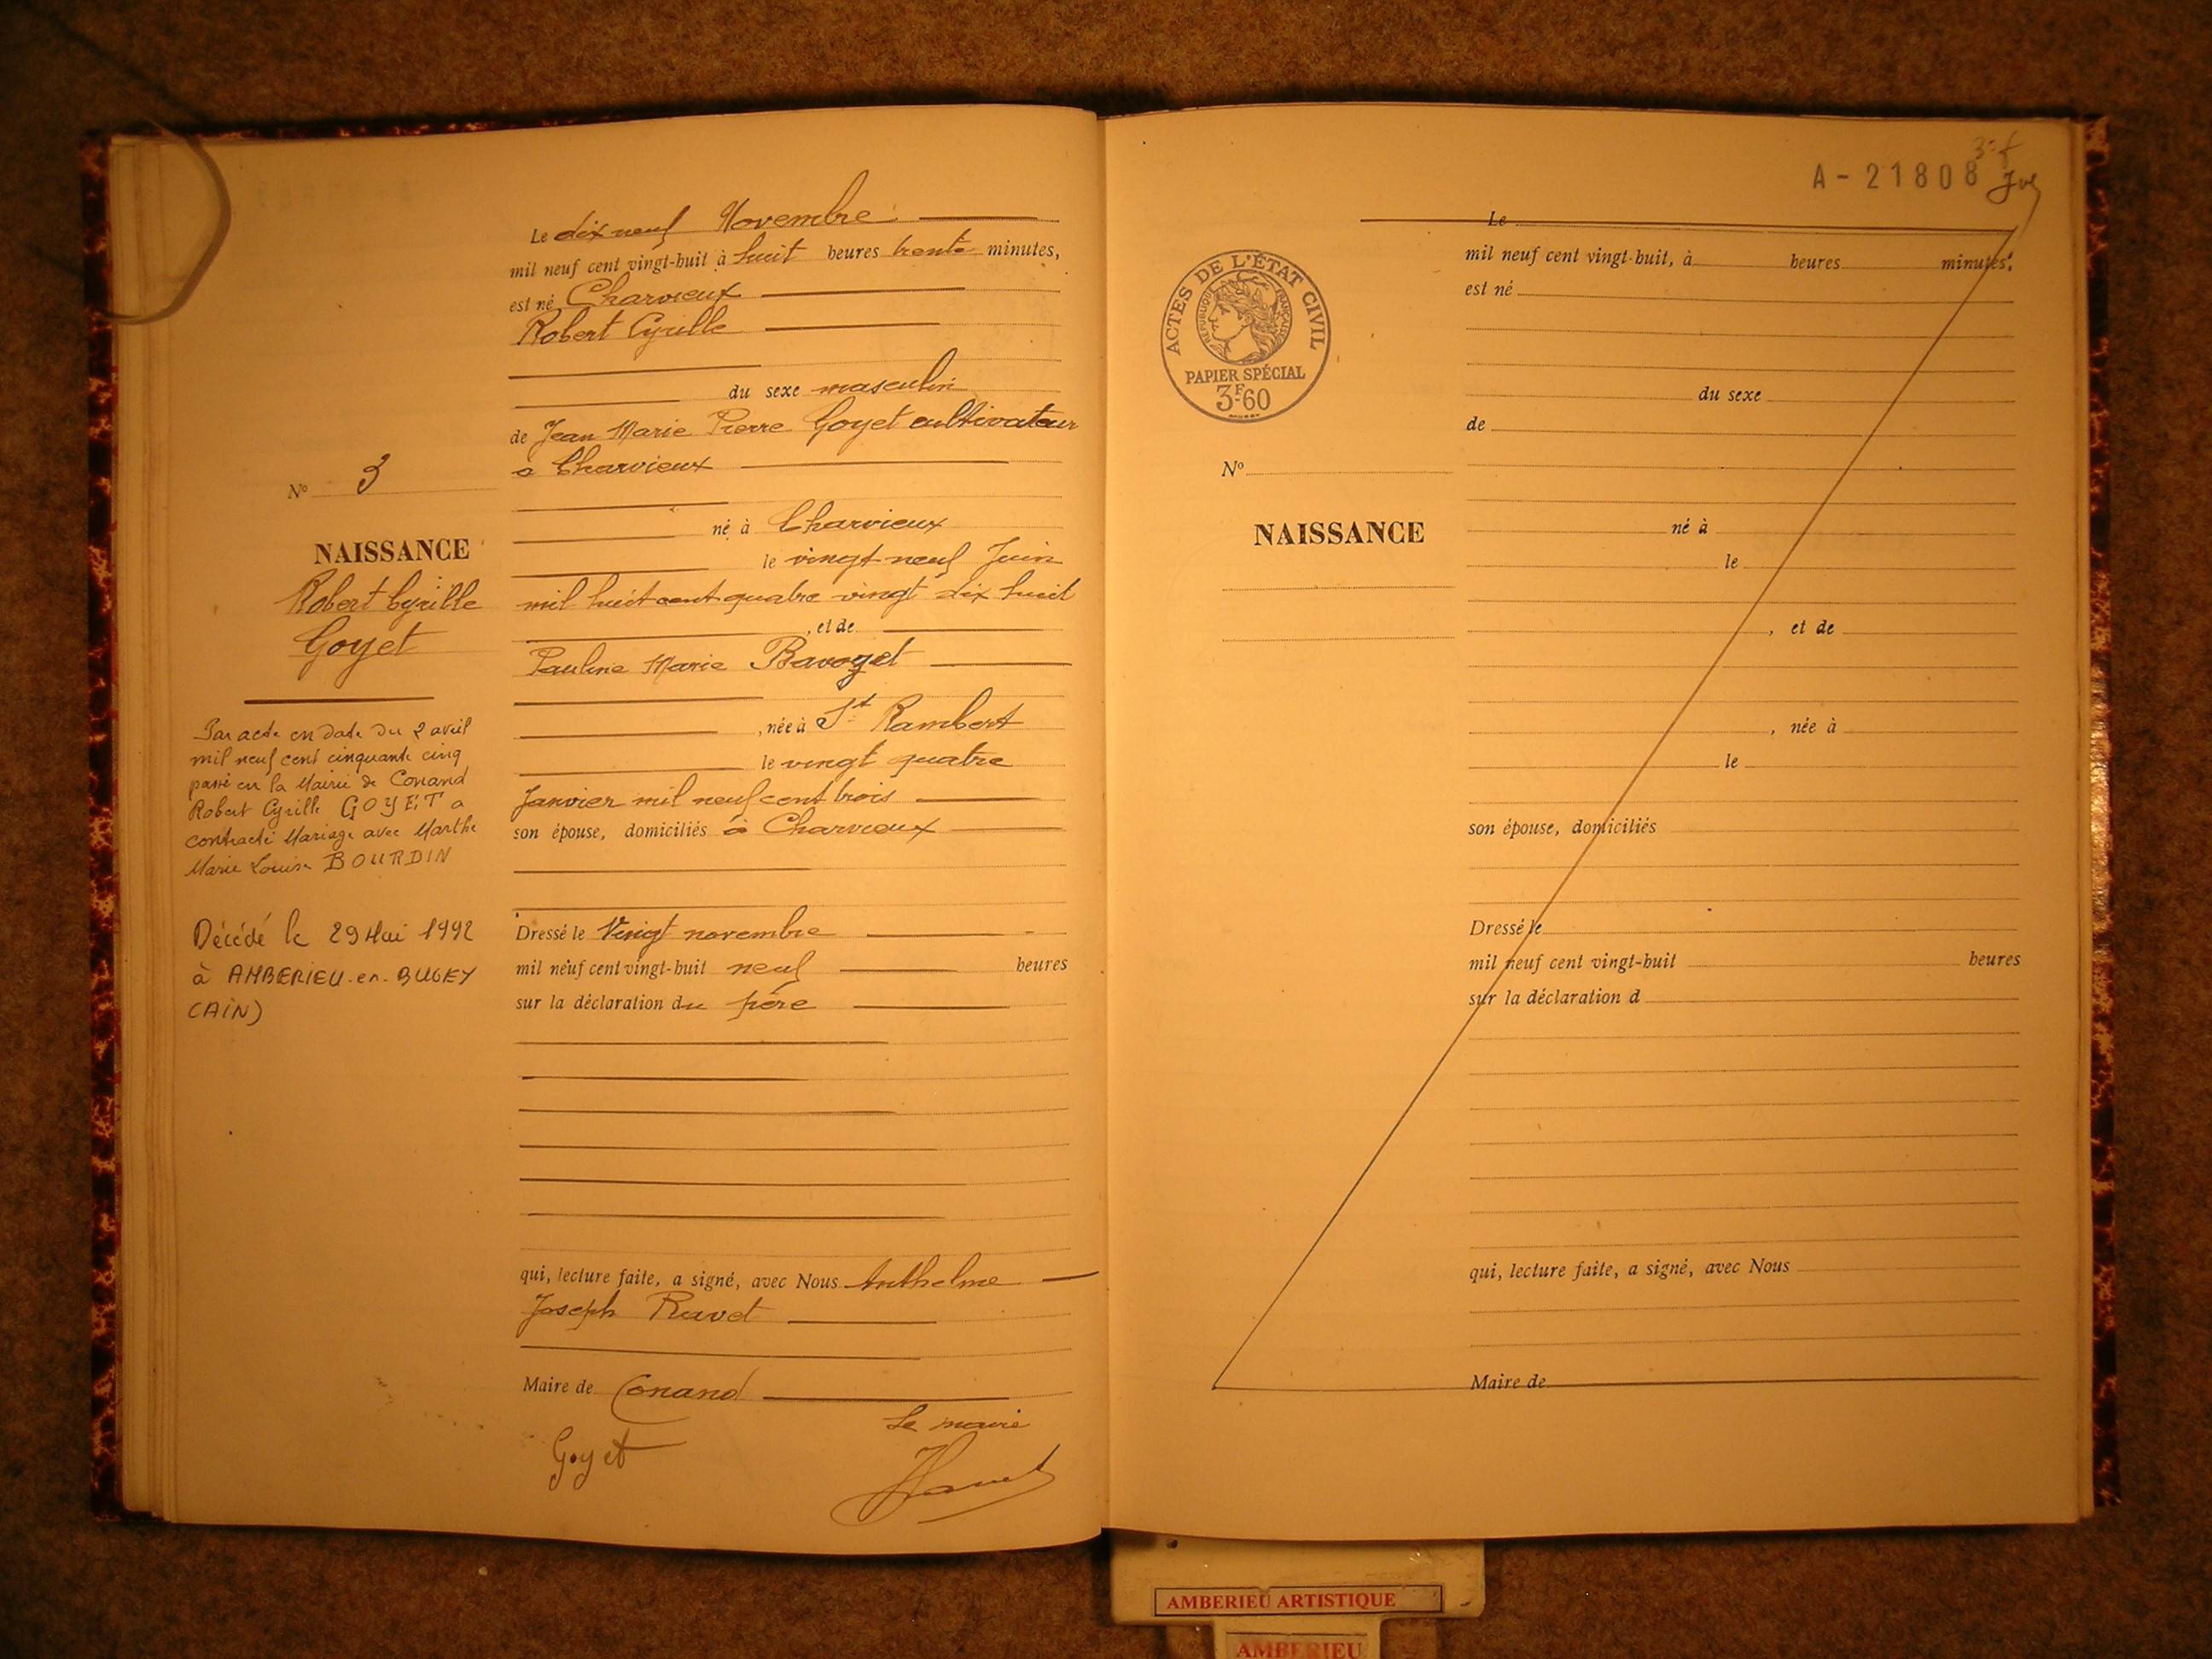 Le dix neuf Novembre
mil neuf cent vingt-huit à huit heures trente minutes,
est né Charvieux
Robert Cyrille
du sexe masculin
de Jean Marie Pierre Goyet cultivateur
à Charvieux
né à Charvieux
le vingt neuf Juin
mil huit cent quatre vingt dix huit
, et de
Pauline Marie Bavozet
, née à St Rambert
le vingt quatre
Janvier mil neuf cent trois
son épouse, domiciliés à Charvieux
Dressé le Vingt novembre
mil neuf cent vingt-huit neuf heures
sur la déclaration du père
qui, lecture faite, a signé, avec Nous Anthelme
Joseph Ravet
Maire de Conand
Le maire
Goyet
No 3
NAISSANCE
Robert Cyrille
Goyet
Par acte en date du 2 avril
mil neuf cent cinquante cinq
passé en la Mairie de Conand
Robert Cyrille GOYET a
contracté Mariage avec Marthe
Marie Louise BOURDIN
Décédé le 29 Mai 1992
à AMBERIEU-en-BUGEY
(AIN)
A-21808
ACTES DE L'ÉTAT CIVIL
RÉPUBLIQUE FRANÇAISE
PAPIER SPÉCIAL
3F60
No
NAISSANCE
Le
mil neuf cent vingt-huit, à heures minutes,
est né
du sexe
de
né à
le
, et de
, née à
le
son épouse, domiciliés
Dressé le
mil neuf cent vingt-huit heures
sur la déclaration d
qui, lecture faite, a signé, avec Nous
Maire de
AMBERIEU ARTISTIQUE
AMBERIEU